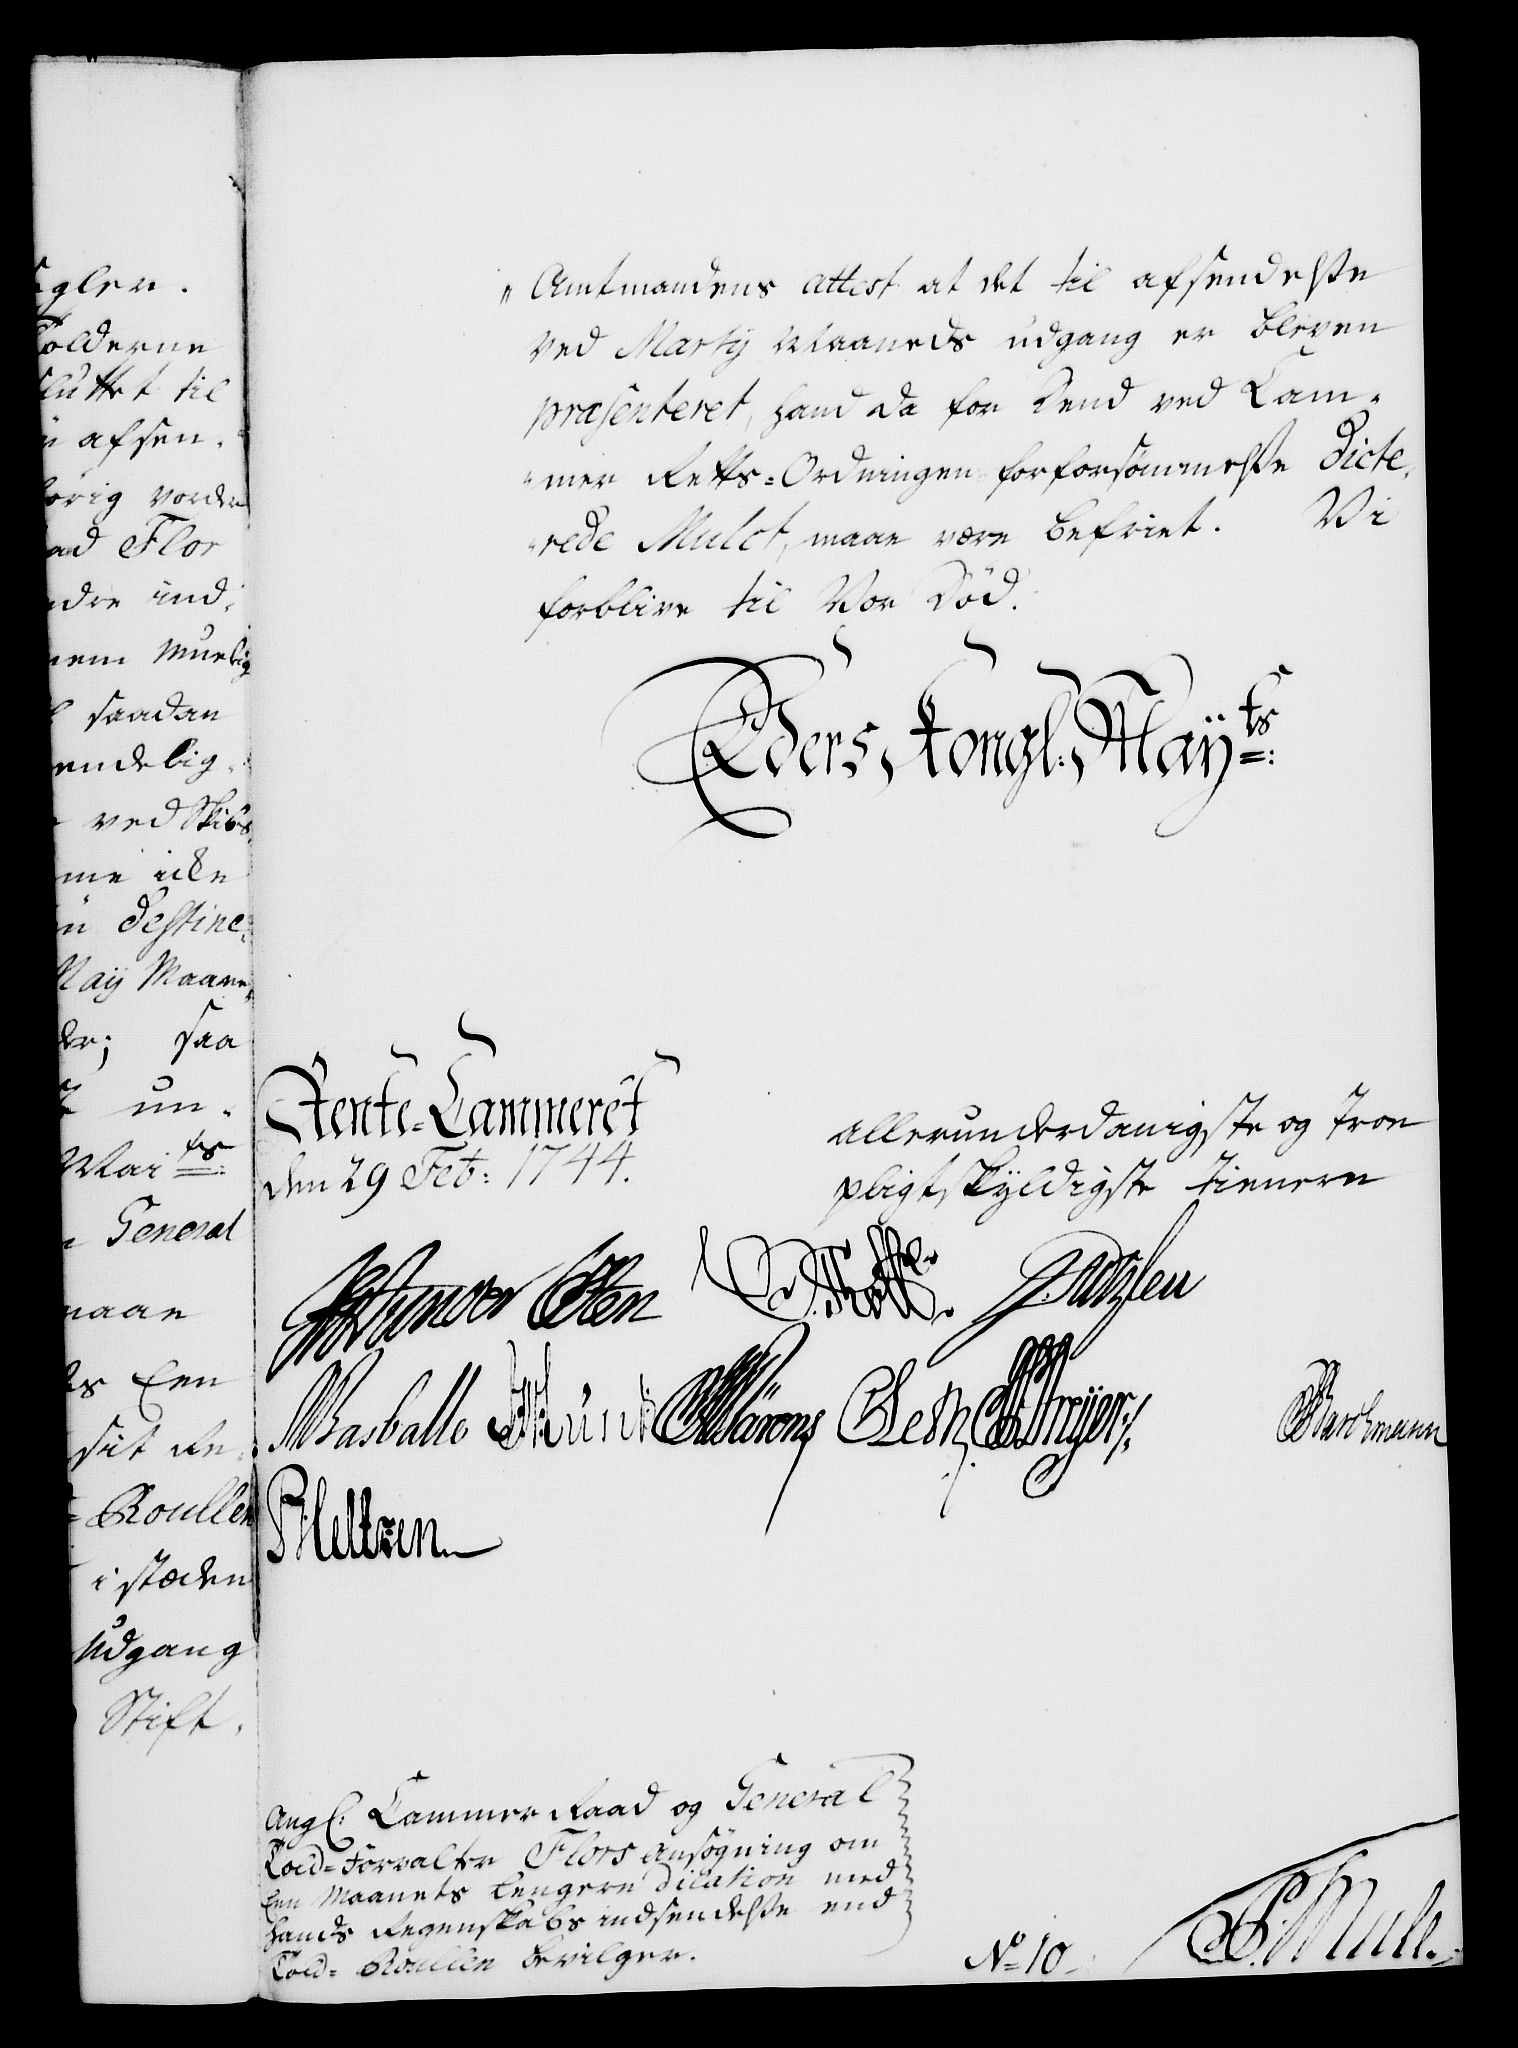 gler.
Tolderne
sluttet til
afsen-
hörig vorder
Flor
andre ind-
nem muelig
saadan
endelig-
ved Skibs
me icke
destine-
May Maane-
der; saa
un-
Mai ts:
General
maae
Een
sit Re-
Roullen
i stæden
Udgang
Stift-
"Amtmandens attest at det til afsendelse
ved Marty Maaneds udgang er bleven
præsenteret, hand da for dend ved Cam-
"mer Retts-Ordningen forforsömmelse dicte-
"rede Mulct, maae være befriet. Vi
forblive til Vor Död.
Eders Kongl: May ts:
Rente-Cammeret
den 29 Feb: 1744.
allerunderdanigste og troe
pligtskyldigste tienere
Holmsted

Basballe
Barchmann
PHeltzen
Ang: Cammer Raad og General
Told-Forvalter Flors ansögning om
Een Maanets lengere dilation med
hands Regenskabs indsendelse end
Told-Roullen bevilger.
No 10
Mule.